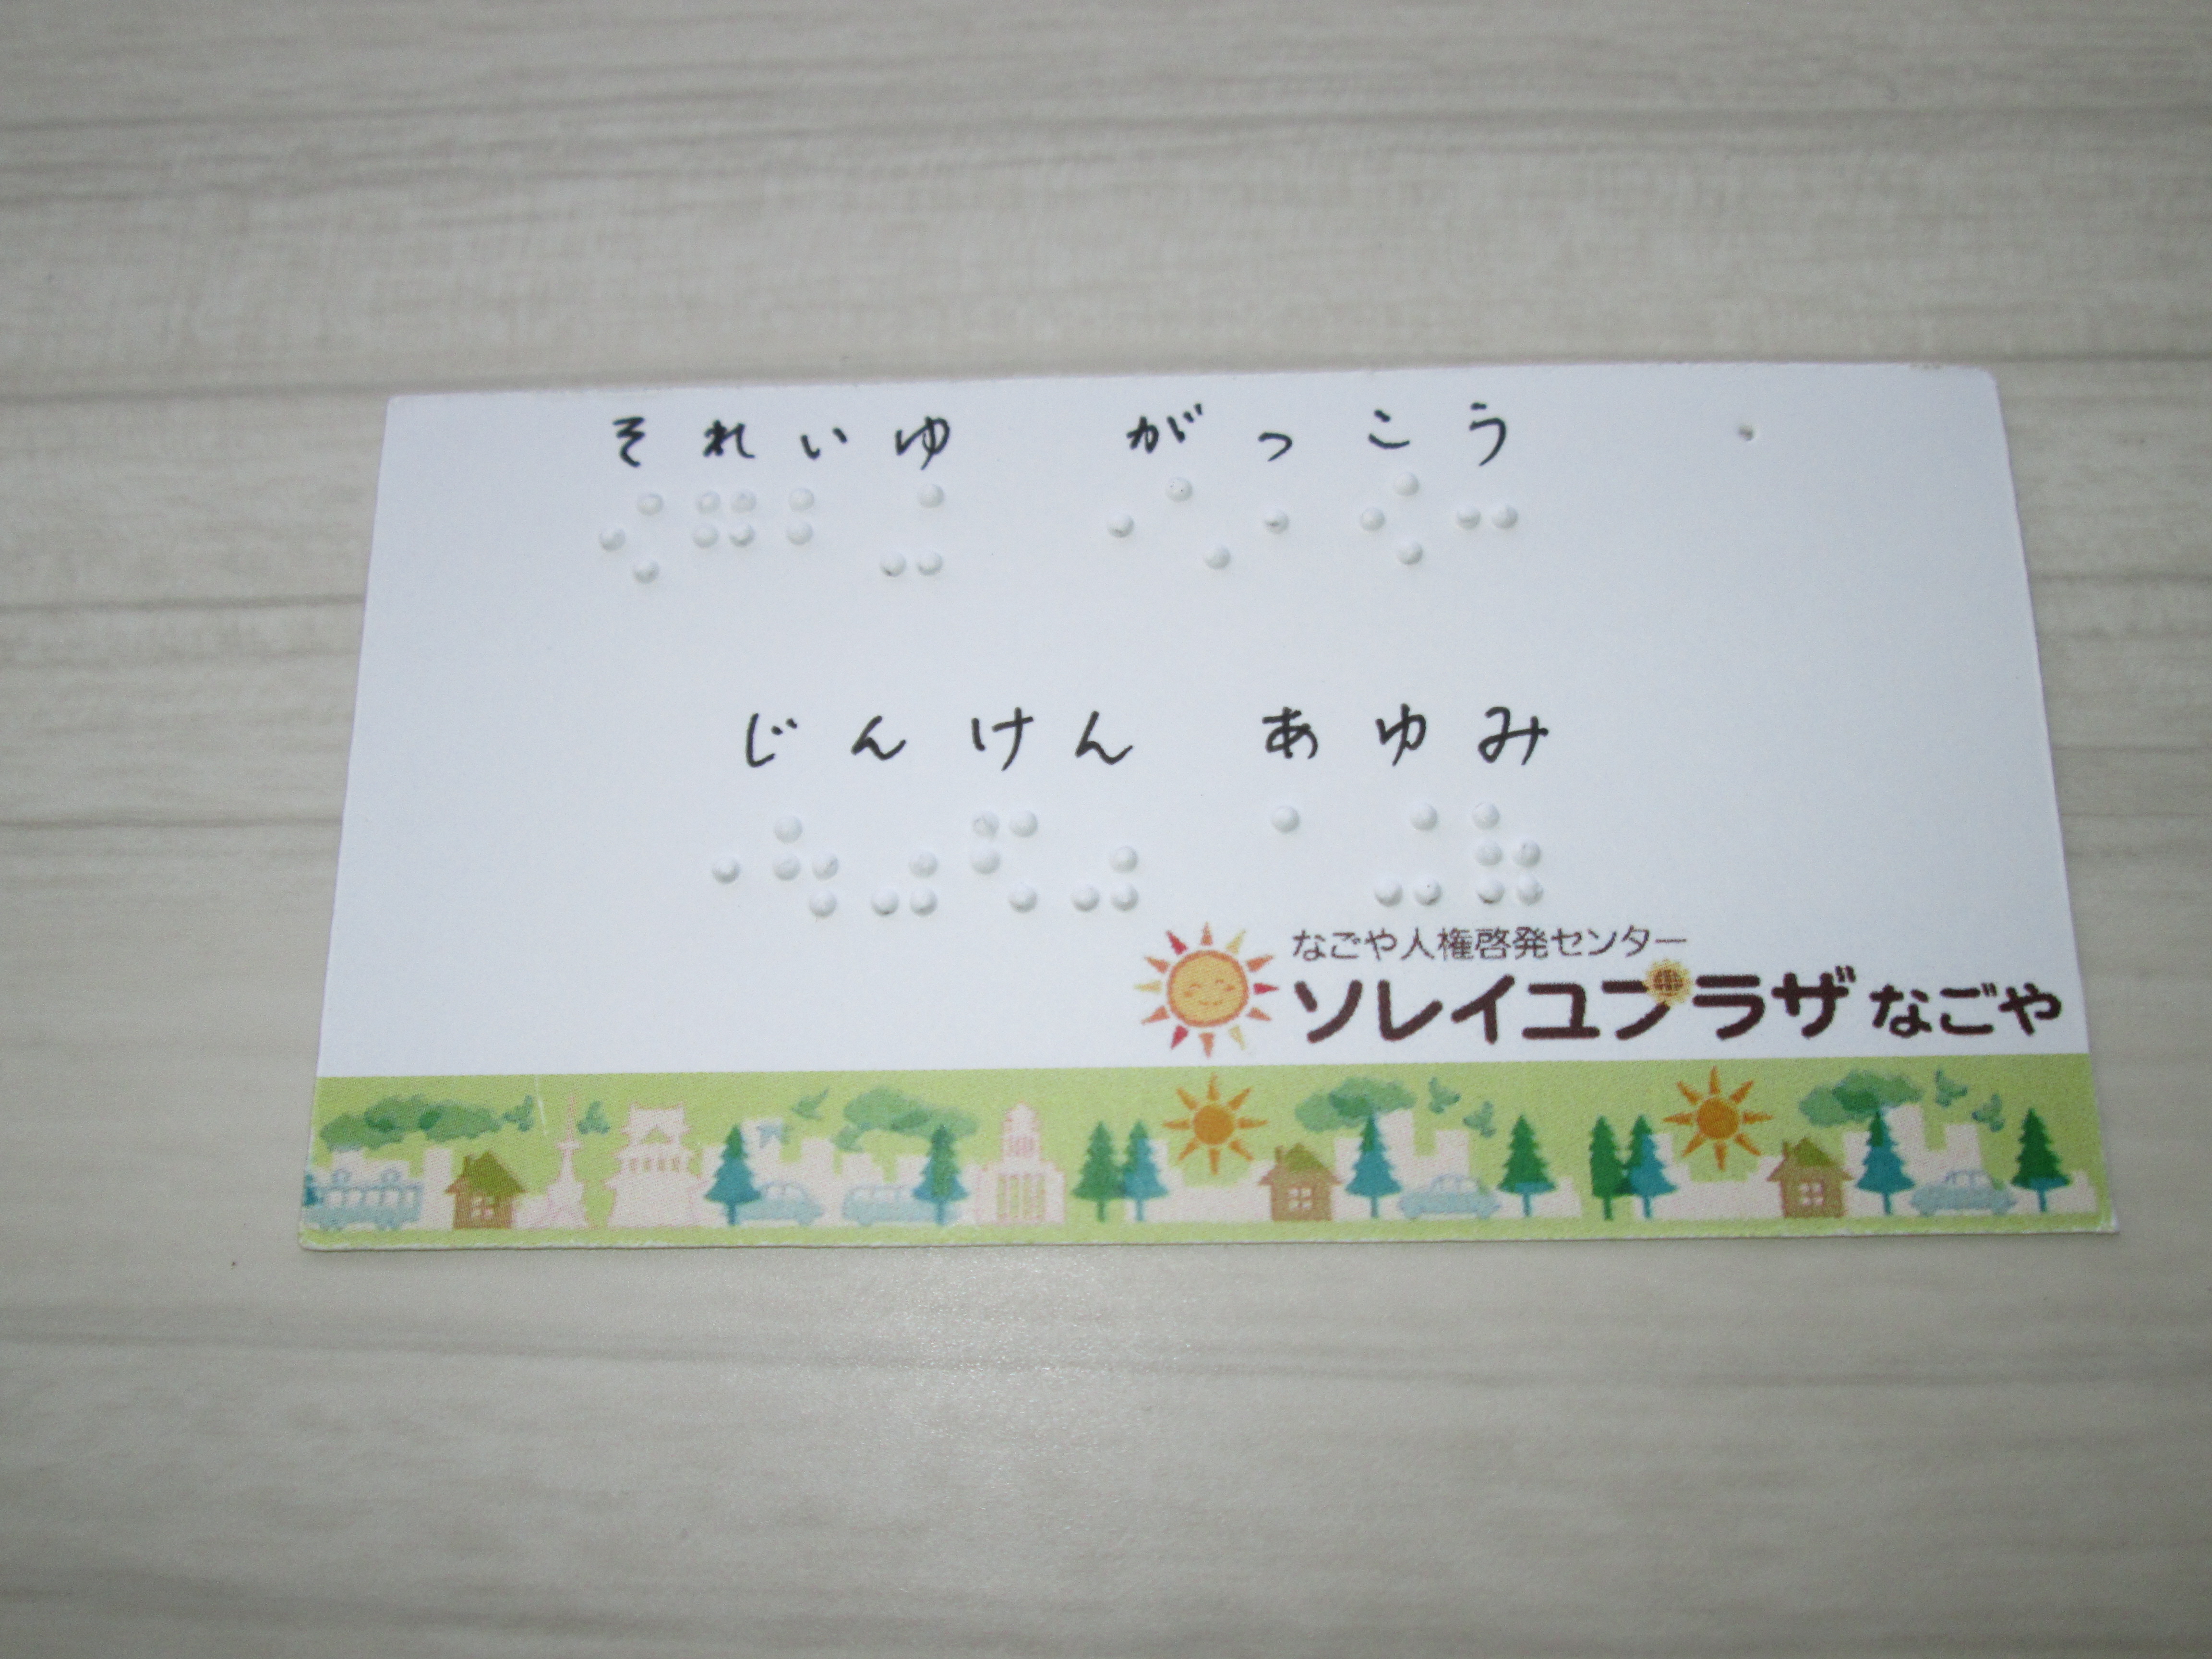 それいゆ がっこう
じんけん あゆみ
なごや人権啓発センター
ソレイユプラザなごや